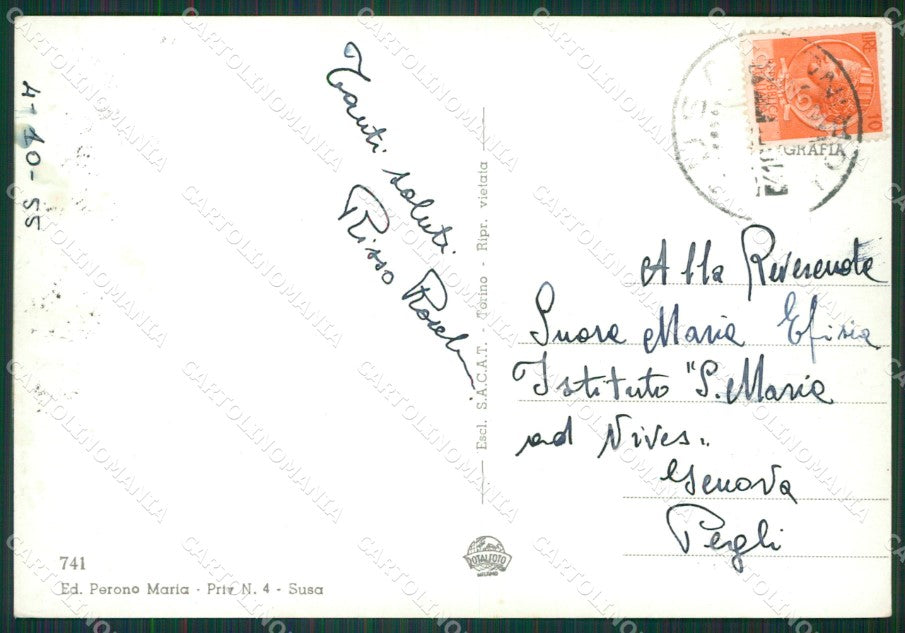 4-10-55
Tanti saluti
Risso
LIRE 10
GRAFIA
Alla Reverenda
Suora Maria Efisia
Istituto "S. Maria
ad Nives"
Genova
Pegli
Escl. S.A.C.A.T. - Torino - Ripr. vietata
ROTALFOTO
MILANO
741
Ed. Perono Maria - Priv N. 4 - Susa
CARTOLINOMANIA